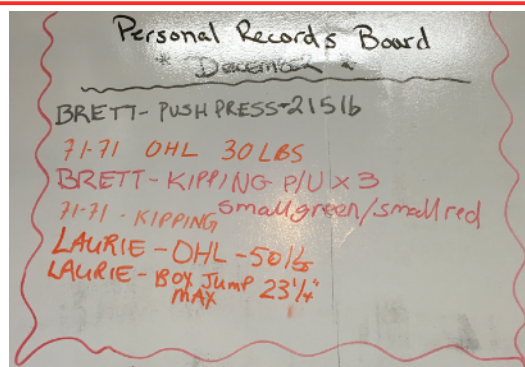 Personal Records Board
* December *
BRETT- PUSH PRESS-215lb
71-71 OHL 30 LBS
BRETT-KIPPING P/U x 3
71-71 - KIPPING small green/small red
LAURIE-OHL-50lbs
LAURIE- BOX JUMP 23 1/4"
MAX